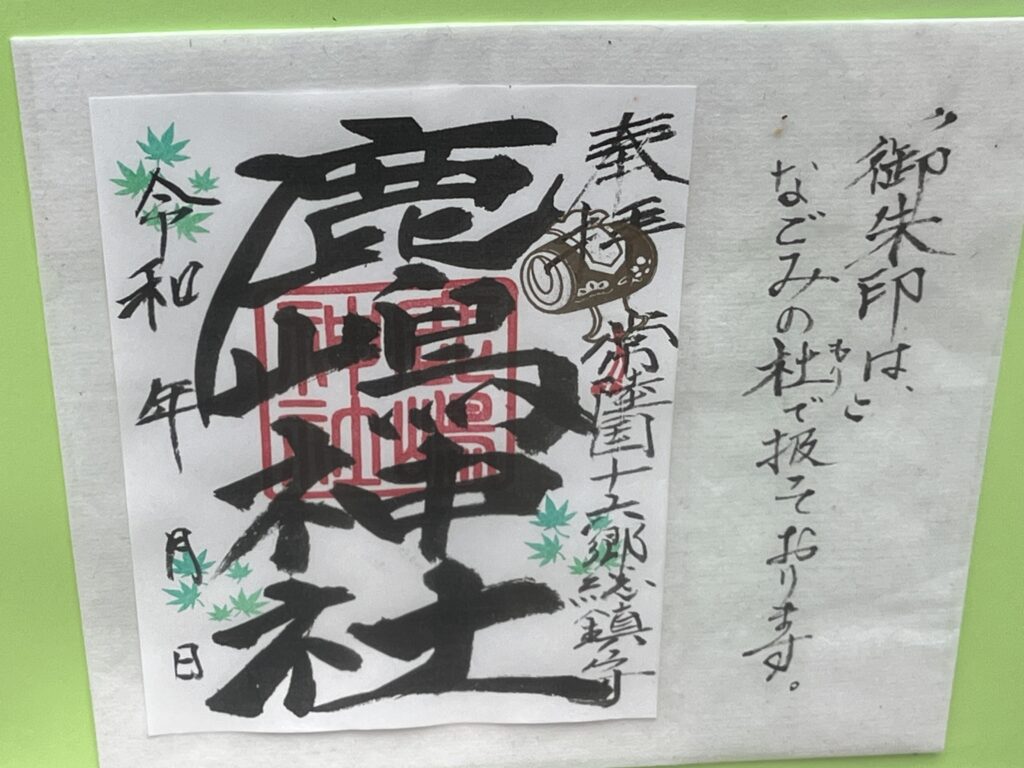 御朱印は、
なごみの社で扱っております。
もり
奉拝
常陸国十六郷総鎮守
鹿嶋神社
鹿嶋神社
令和 年 月 日